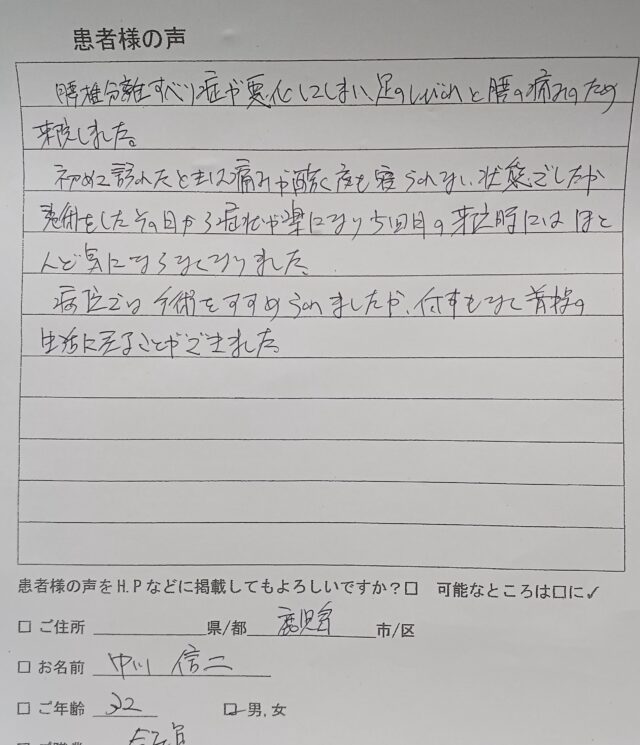 患者様の声
腰椎分離すべり症が悪化してしまい、足のしびれと腰の痛みのため
来院しました。
初めて訪れたときは痛みが酷く夜も寝られない状態でしたが
施術をしたその日から症状が楽になり5回目の来院時にはほと
んど気にならなくなりました。
病院では手術をすすめられましたが、何事もなく普段の
生活に戻ることができました。
患者様の声をH.Pなどに掲載してもよろしいですか?□ 可能なところは□に✓
□ ご住所 県/都 鹿児島 市/区
□ お名前 中川 信二
□ ご年齢 32 □ 男,女